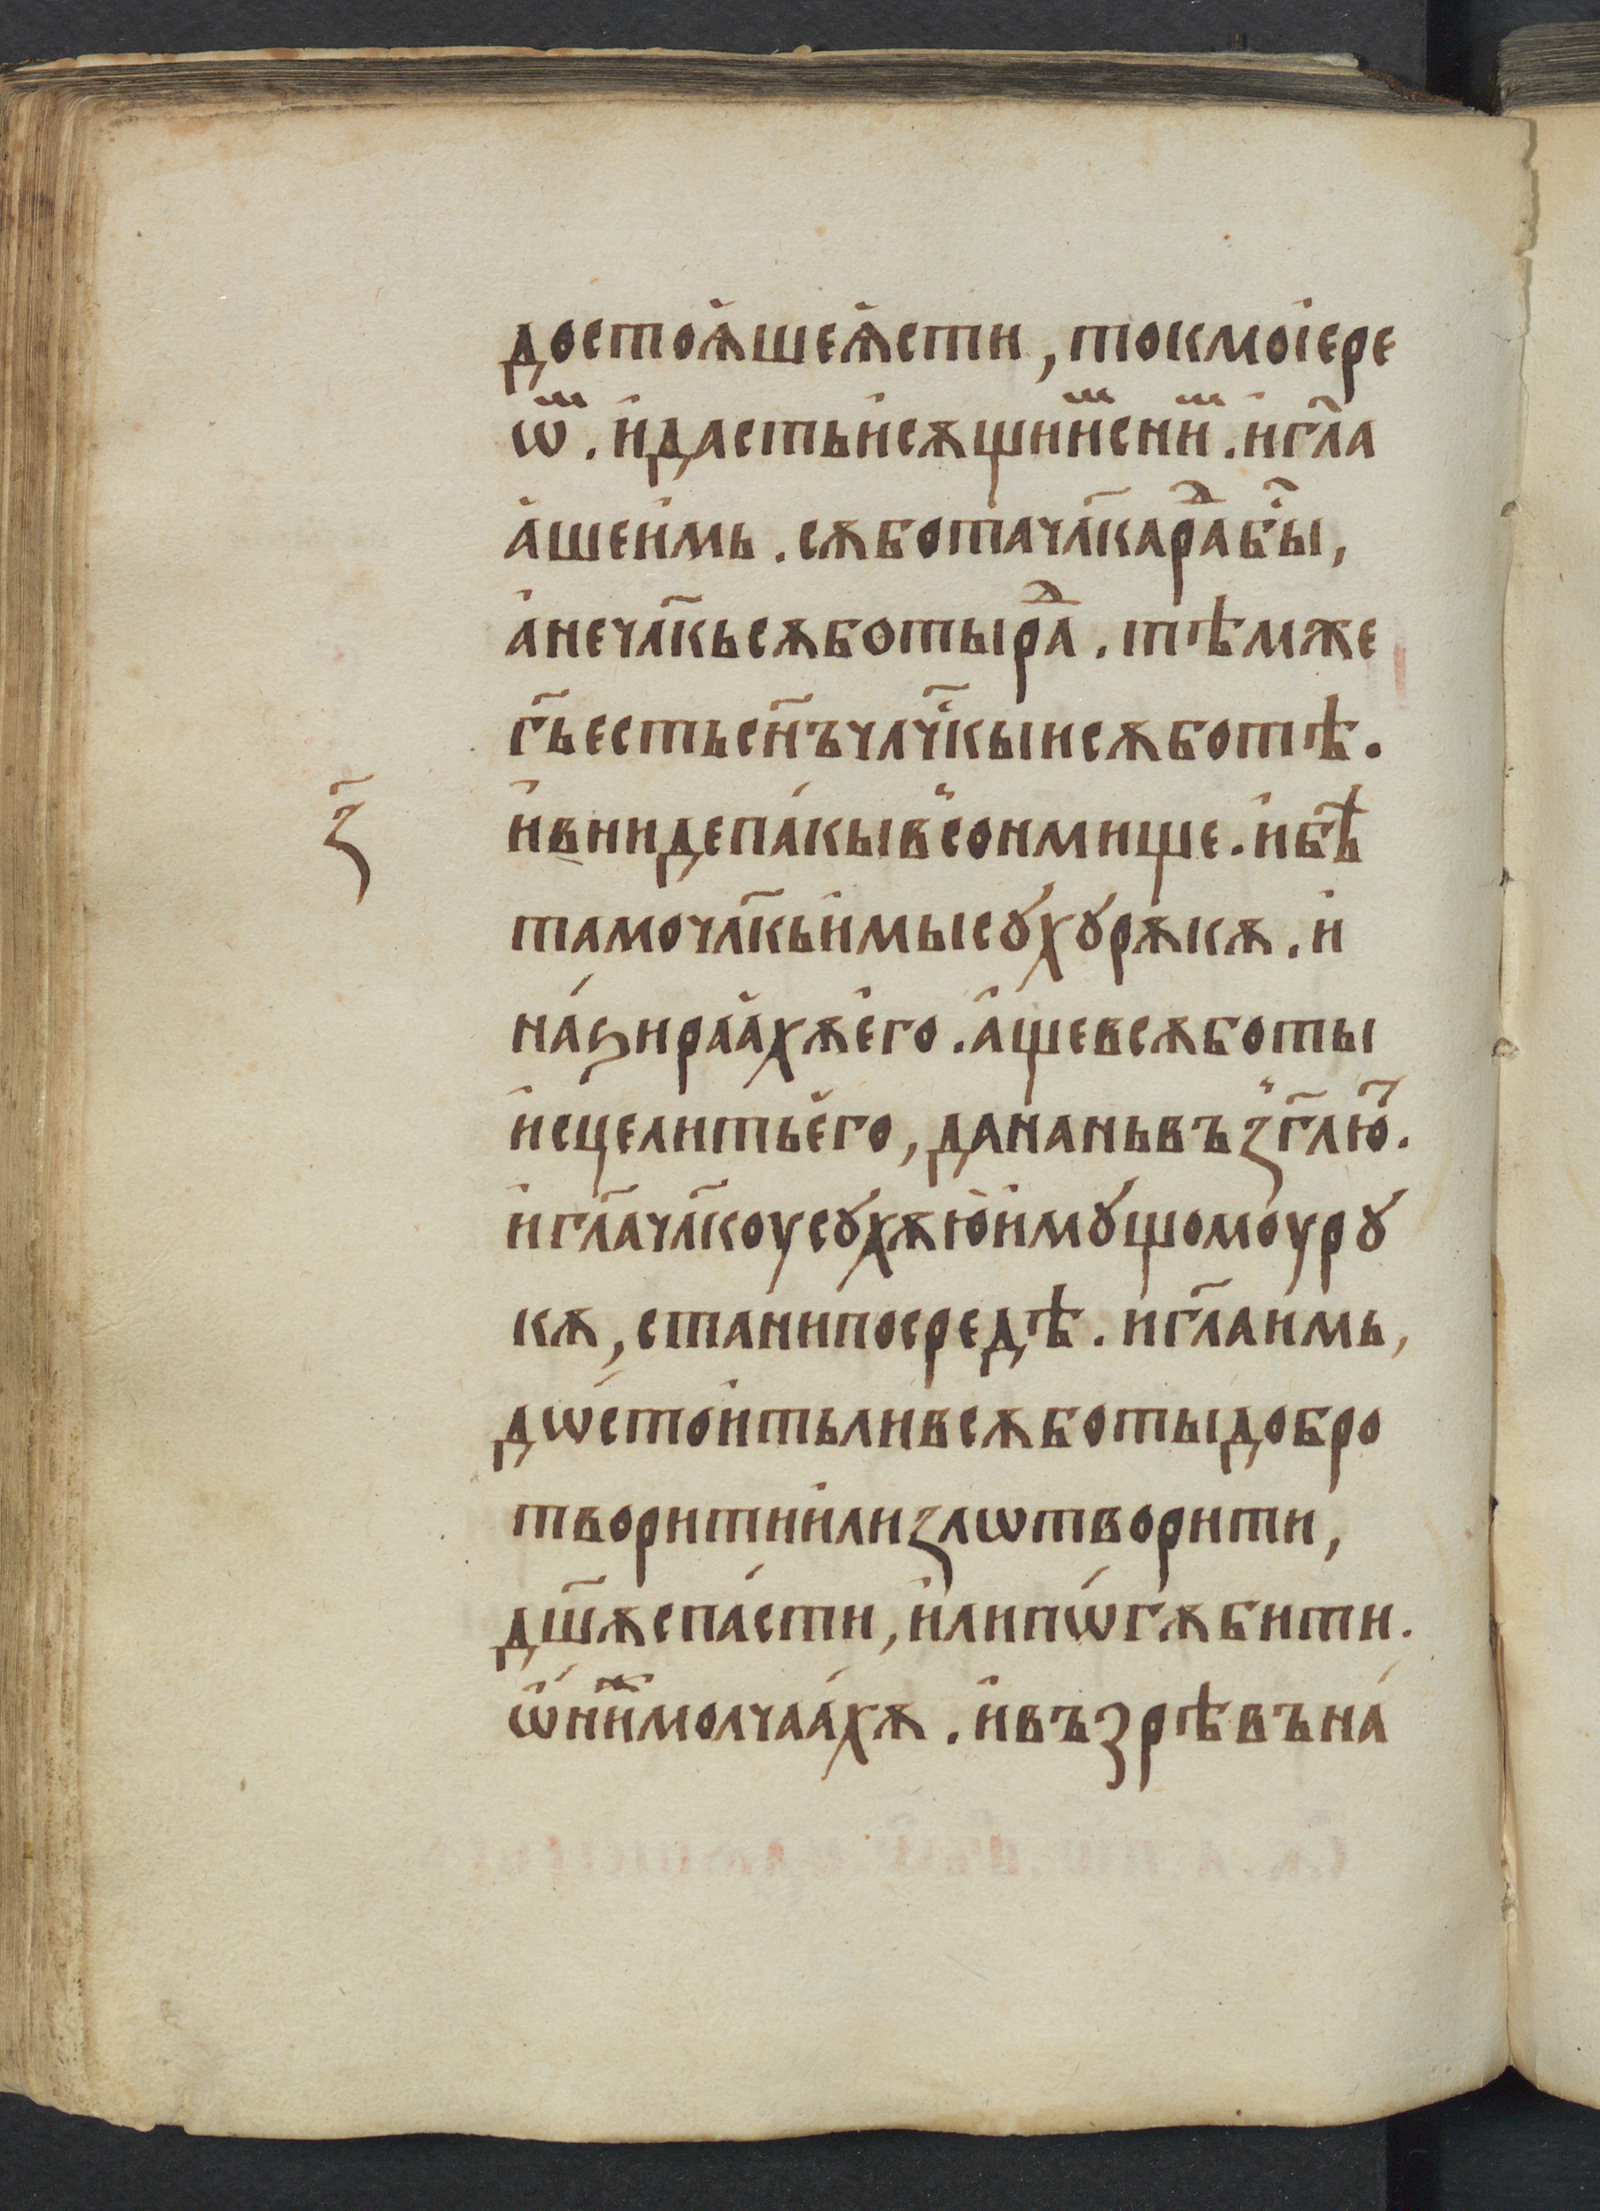 достоꙗ҆шеѧ҆сти, токмоі҆ере
ѡⷨ҇. и҆дастьи҆сѫщиⷨнснⷨи. и҆гл҃а
а҆шеи҆мь. сѫботачл҃караⷣби҃ы,
а҆нечл҃кьсѫботыраⷣ. тѣмже
г҃ьестьсн҃ъчлч҃кыисѫботѣ.
з҃
и҆вниидепа́кыв̾сонмище. и҆бѣ̀
тамочл҃кьи҆мысꙋхꙋрѫкѫ. и҆
на́ꙃираа҆хѫе҆го. а҆щевсѫботы
и҆сцелитье҆го, дананьвъз̾гл҃ю҃.
и҆гл҃ачл҃коусꙋхѫю҆и҆мꙋщомоурꙋ
кѫ, станипосредѣ. игл҃аимь,
дѡ҆стои҆тьливсѫботыдобро
творитиилизлѡтворити,
дш҃ѫспа́сти, и҆липѡ́гѫбити.
ѡ҆ниⷤмолчаа́хѫ. и҆възрѣвъна́